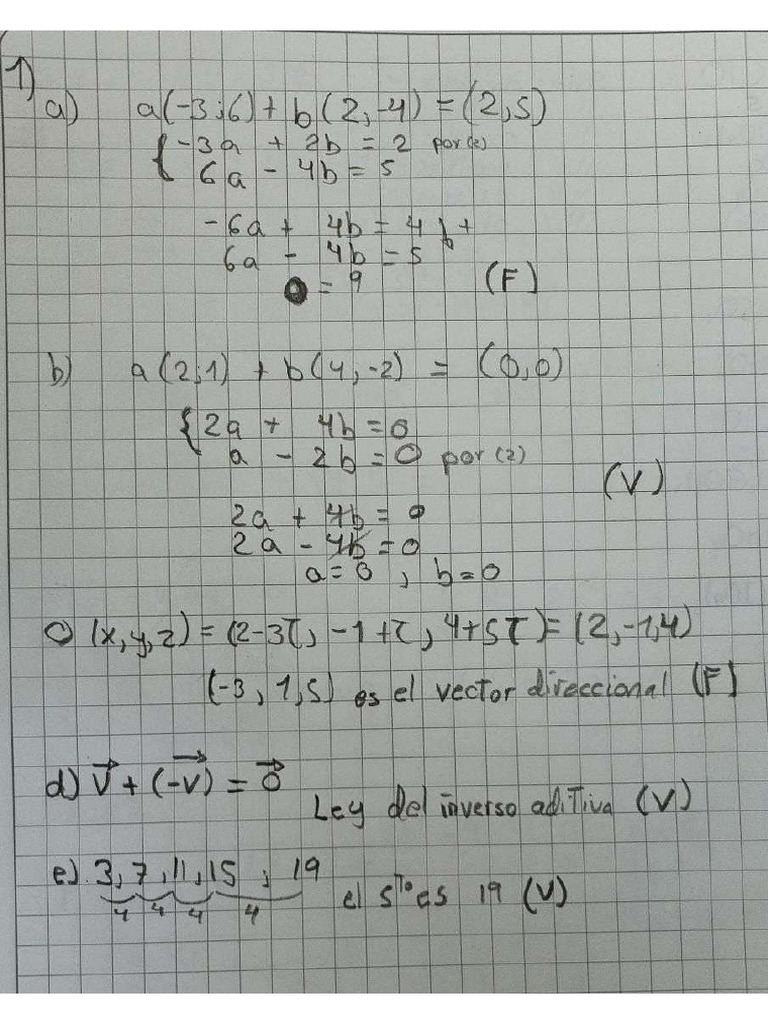 1)
a) a(-3,6) + b(2,-4) = (2,5)
{-3a + 2b = 2 por(2)
6a - 4b = 5
-6a + 4b = 4 b+
6a - 4b = 5
0 = 9 (F)
b) a(2,1) + b(4,-2) = (0,0)
{2a + 4b = 0
a - 2b = 0 por(2)
(V)
2a + 4b = 0
2a - 4b = 0
a = 0 , b = 0
c) (x,y,z) = (2-3τ, -1+τ, 4+5τ) = (2,-1,4)
(-3,1,5) es el vector direccional (F)
d) V⃗ + (-V⃗) = 0⃗
Ley del inverso aditiva (V)
e) 3, 7, 11, 15, 19
4 4 4 4 el 5to es 19 (V)